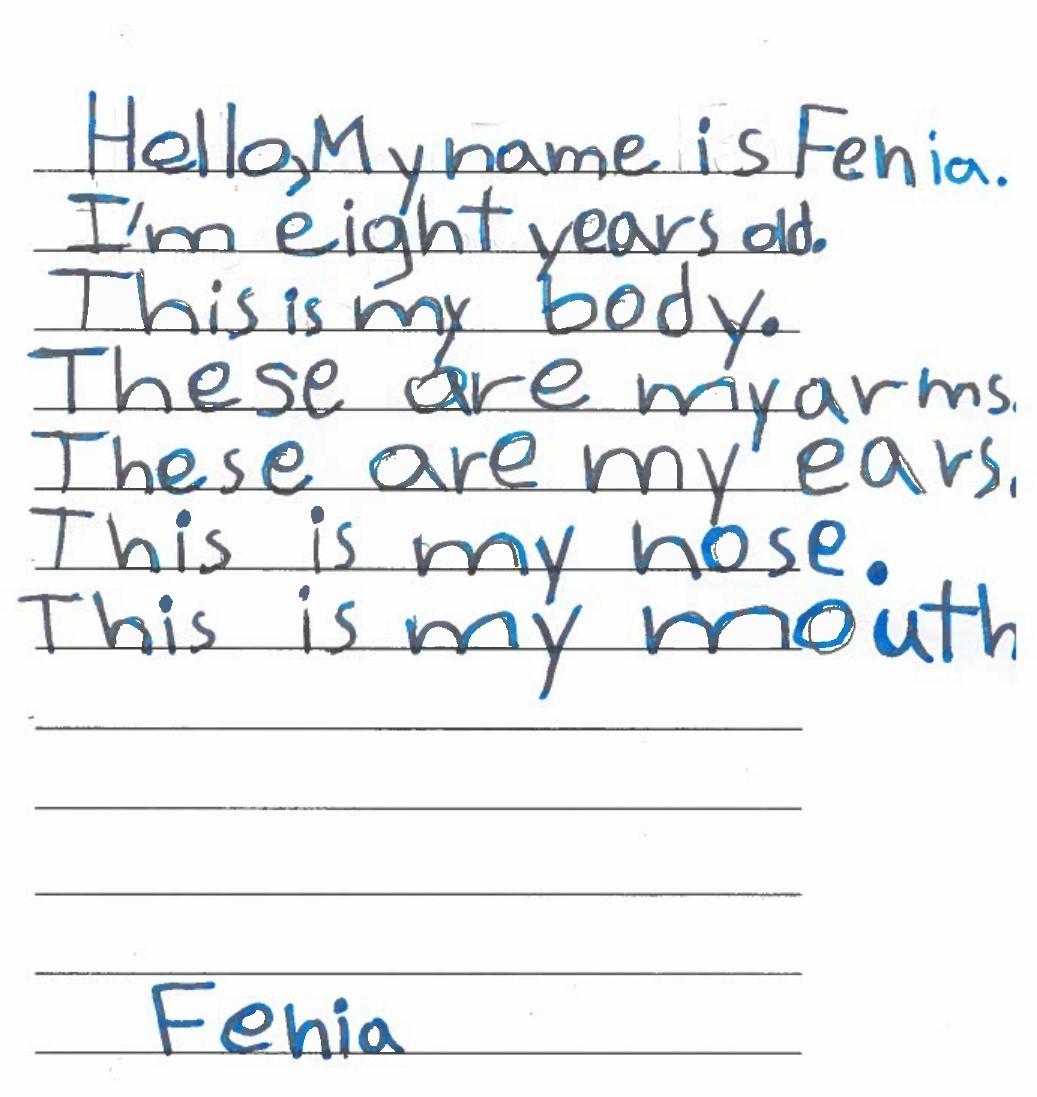 Hello, My name is Fenia.
I'm eight years old.
This is my body.
These are my arms.
These are my ears.
This is my nose.
This is my mouth
Fenia